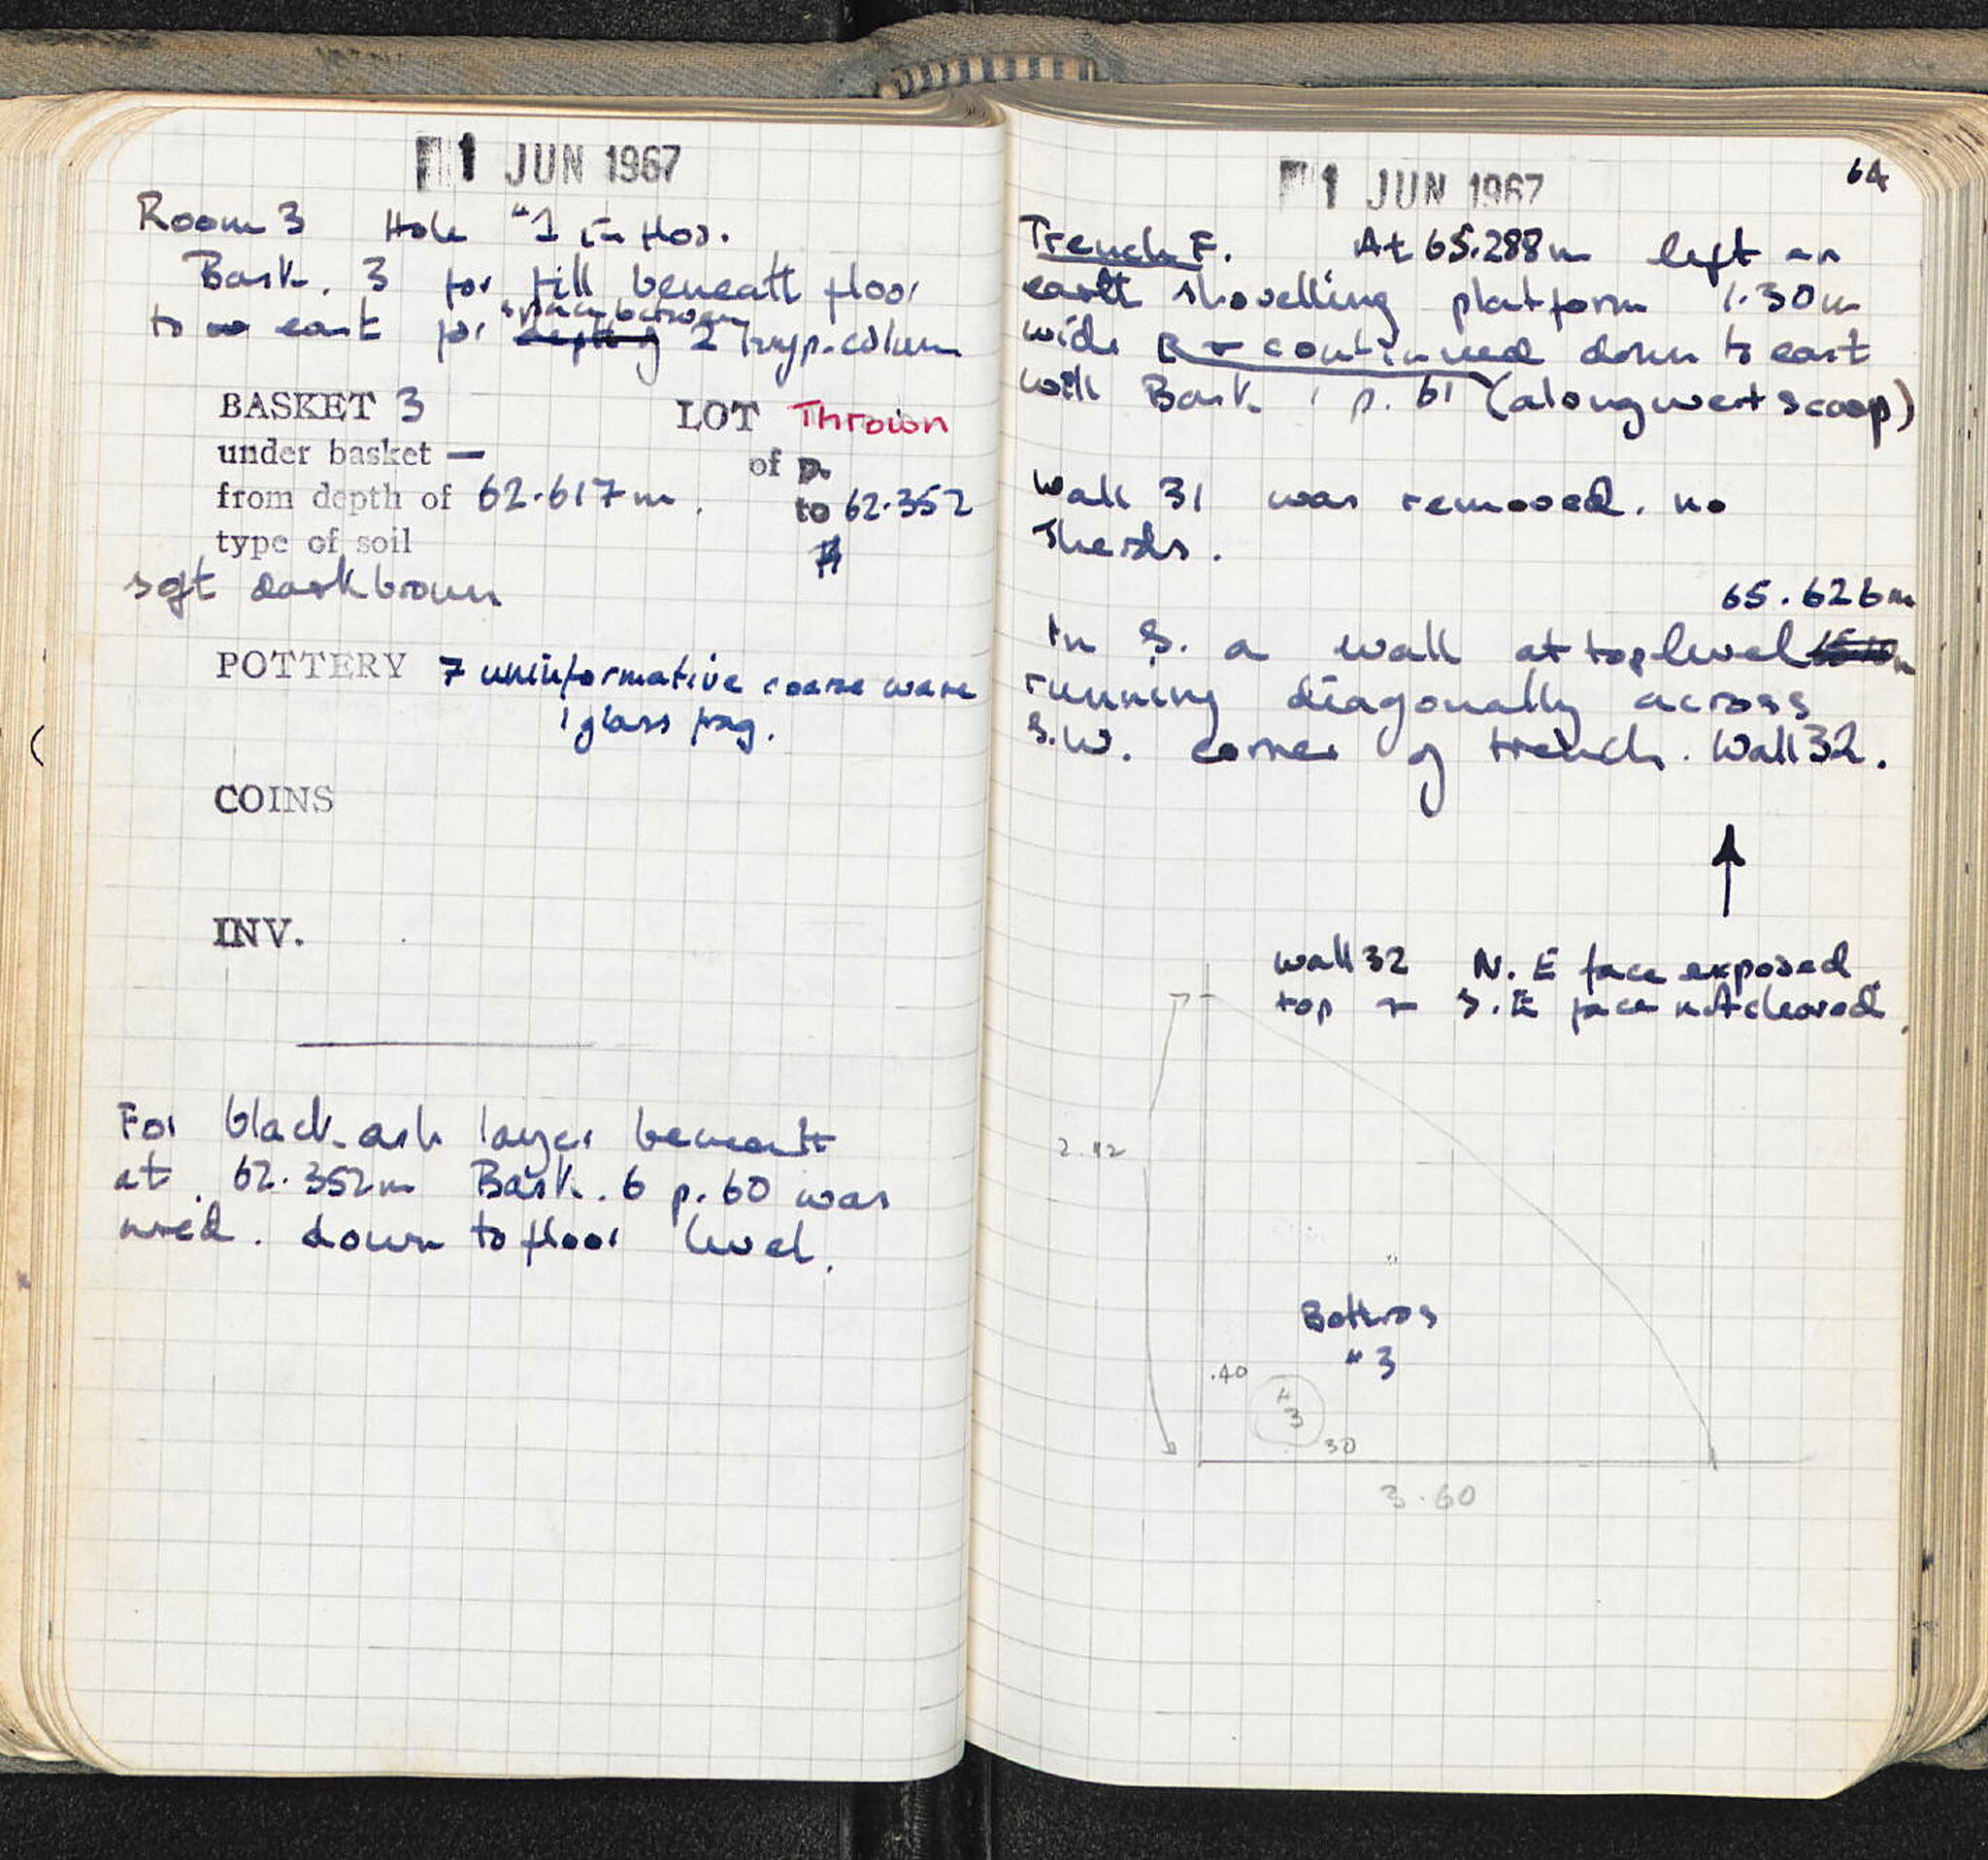 1 JUN 1967
Room 3 Hole #1 in floor.
Bask. 3 for fill beneath floor
space between
to east for depth of 2 hyp. column
BASKET 3 LOT Thrown
under basket — of p.
from depth of 62.617m. to 62.352
type of soil
soft dark brown
POTTERY 7 uninformative coarse ware
1 glass frag.
COINS
INV.
For black ash layer beneath
at 62.352m Bask. 6 p. 60 was
used. down to floor level.
64
1 JUN 1967
Trench F. At 65.288m left an
earth shovelling platform 1.30m
wide & continued down to east
with Bask 1 p. 61 (along west scoop)
Wall 31 was removed. no
sherds.
65.626m
In S. a wall at top level
running diagonally across
S.W. corner of trench. Wall 32.
wall 32 N.E face exposed
top + S.E face not cleared.
2.82
Bothros
#3
.40
#
3
30
3.60